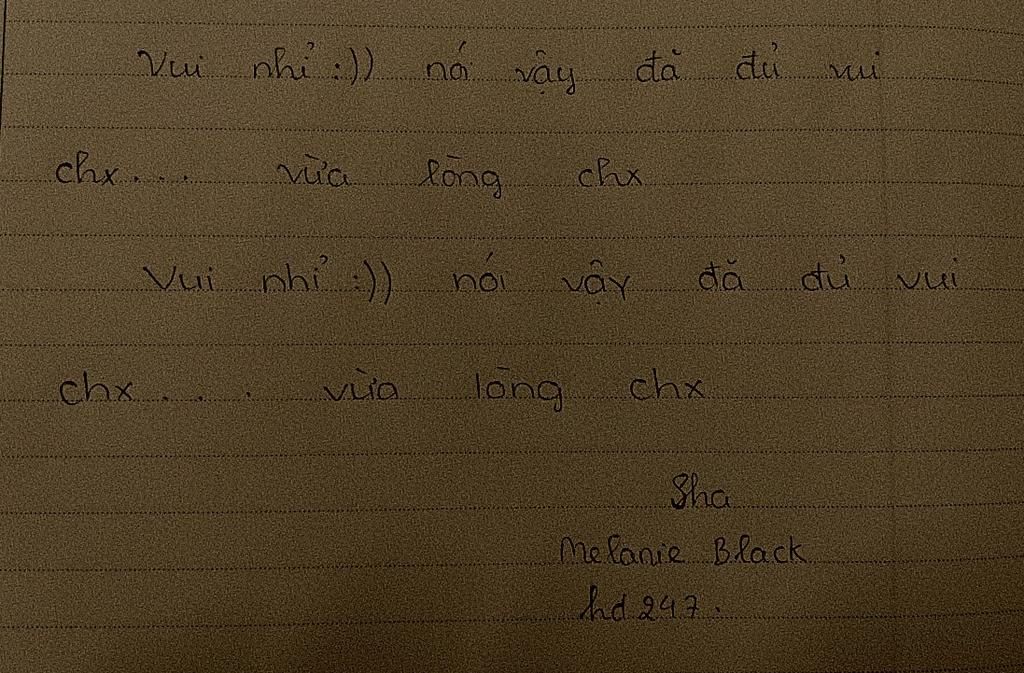 Vui nhỉ :)) nói vậy đã đủ vui
chx... vừa lòng chx
Vui nhỉ :)) nói vậy đã đủ vui
chx... vừa lòng chx
Sha
Melanie Black
hd 247.